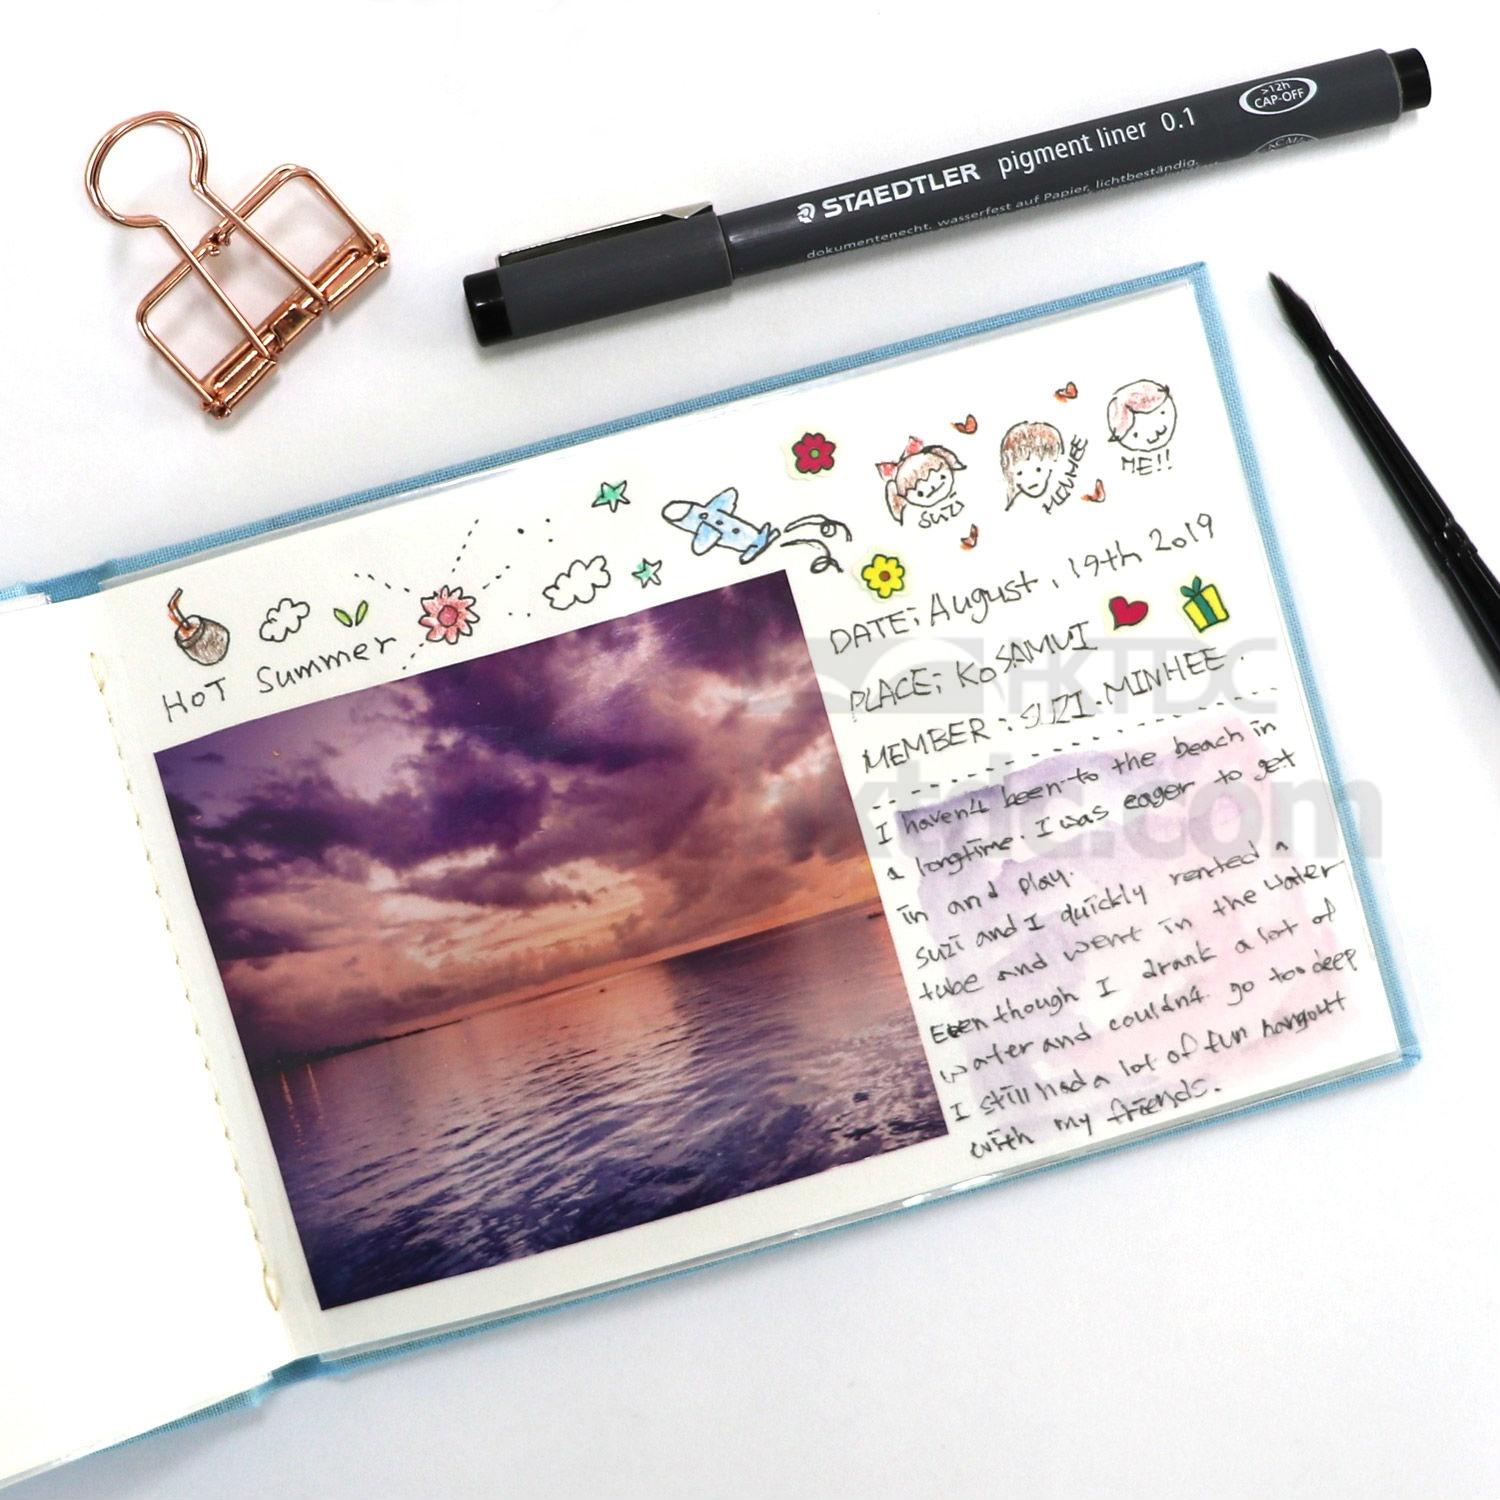 >12h
CAP-OFF
STAEDTLER pigment liner 0.1
dokumentenecht, wasserfest auf Papier, lichtbeständig.
SUZI
MINHEE
ME!!
HOT Summer
DATE; August, 19th 2019
PLACE; KO SAMUI
MEMBER : SUZI. MINHEE.
HKTDC
hktdc.com
I haven't been to the beach in
a longtime. I was eager to get
in and play.
Suzi and I quickly rented a
tube and went in the water
Even though I drank a lot of
water and couldn't go too deep
I still had a lot of fun hangout
with my friends.